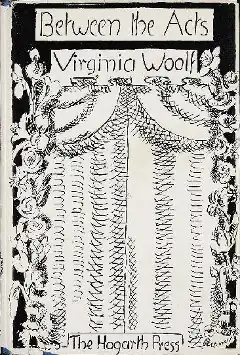 Between the Acts
Virginia Woolf
The Hogarth Press